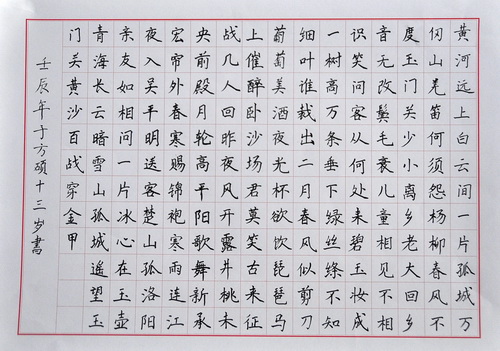 黄河远上白云间一片孤城万
仞山羌笛何须怨杨柳春风不
度玉门关少小离乡老大回乡
音无改鬓毛衰儿童相见不相
识笑问客从何处来碧玉妆成
一树高万条垂下绿丝绦不知
细叶谁裁出二月春风似剪刀
葡萄美酒夜光杯欲饮琵琶马
上催醉卧沙场君莫笑古来征
战几人回昨夜风开露井桃未
央前殿月轮高平阳歌舞新承
宠帘外春寒赐锦袍寒雨连江
夜入吴平明送客楚山孤洛阳
亲友如相问一片冰心在玉壶
青海长云暗雪山孤城遥望玉
门关黄沙百战穿金甲
壬辰年于方硕十三岁書